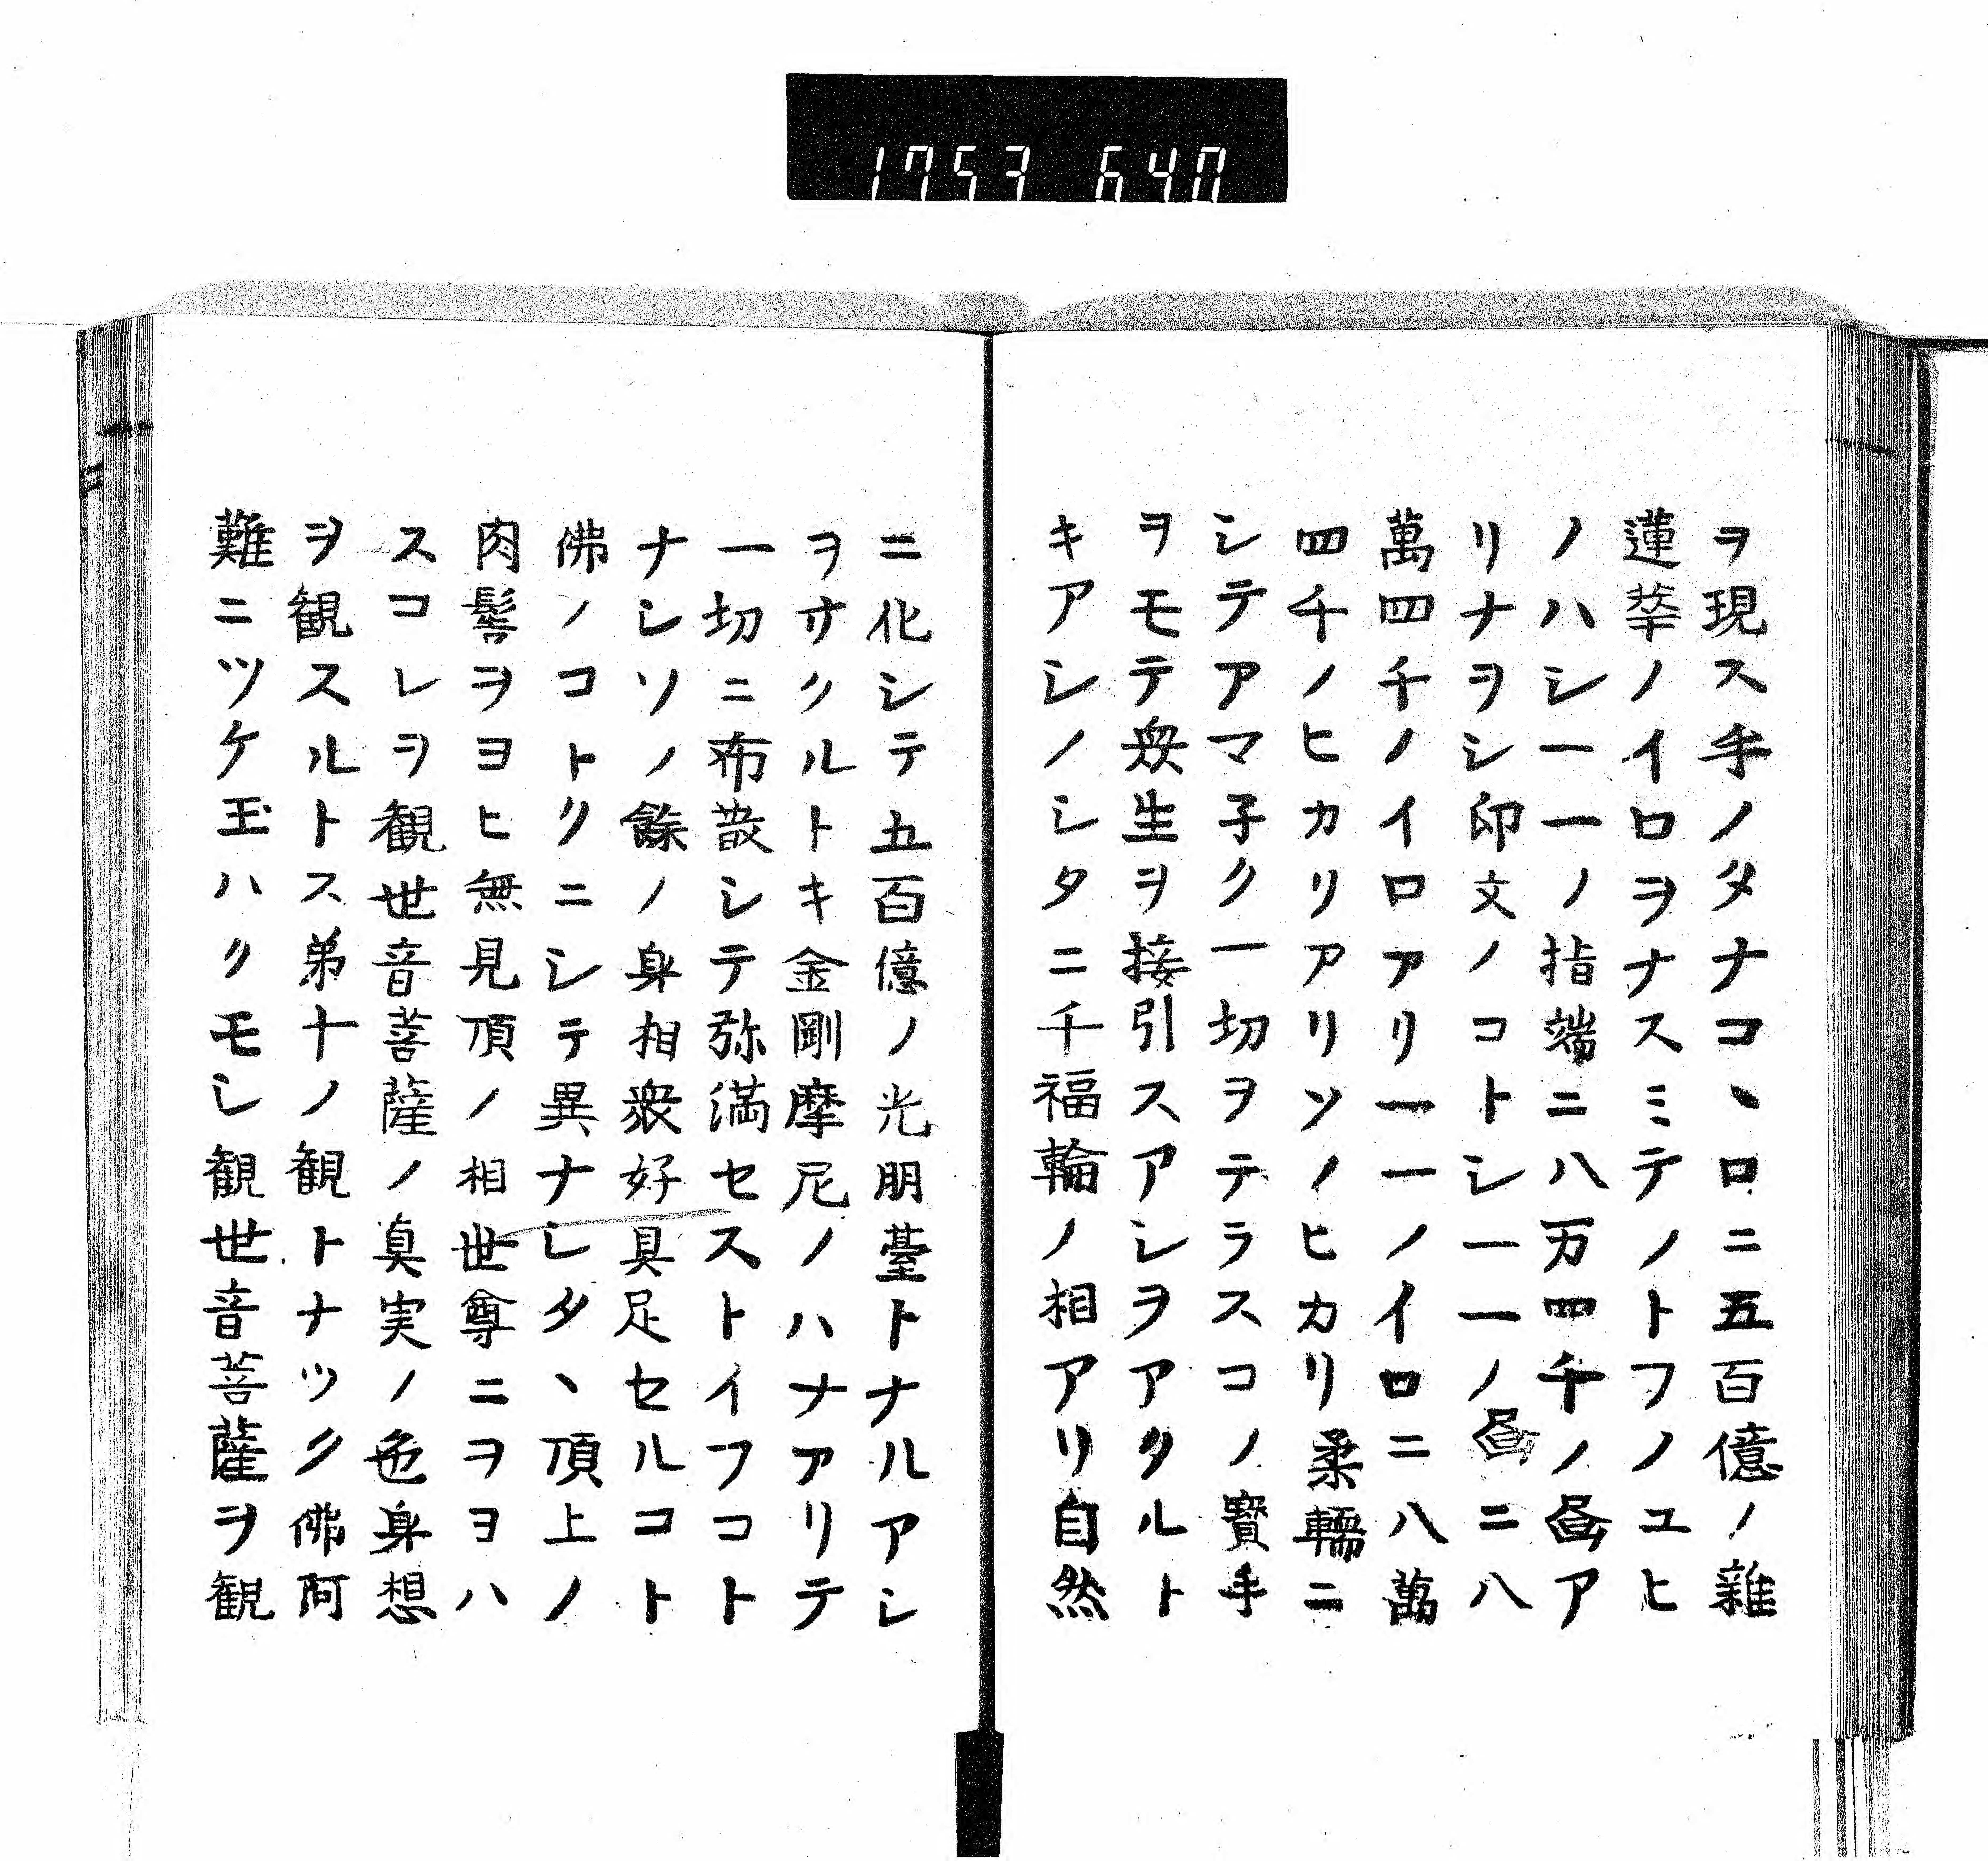 1753 640
ヲ現ス手ノタナコヽロニ五百億ノ雜
蓮華ノイロヲナスミテノトフノユヒ
ノハシ一一ノ指端ニ八万四千ノ畫ア
リナヲシ印文ノコトシ一一ノ畫ニ八
萬四千ノイロアリ一一ノイロニ八萬
四千ノヒカリアリソノヒカリ柔輭ニ
シテアマ子ク一切ヲテラスコノ寳手
ヲモテ衆生ヲ接引スアシヲアクルト
キアシノシタニ千福輪ノ相アリ自然
ニ化シテ五百億ノ光明臺トナルアシ
ヲオクルトキ金剛摩尼ノハナアリテ
一切ニ布散シテ弥満セストイフコト
ナシソノ餘ノ身相衆好具足セルコト
佛ノコトクニシテ異ナシタヽ頂上ノ
肉髻ヲヨヒ無見頂ノ相世尊ニヲヨハ
スコレヲ観世音菩薩ノ真実ノ色身想
ヲ観スルトス弟十ノ観トナツク佛阿
難ニツケ玉ハクモシ観世音菩薩ヲ観